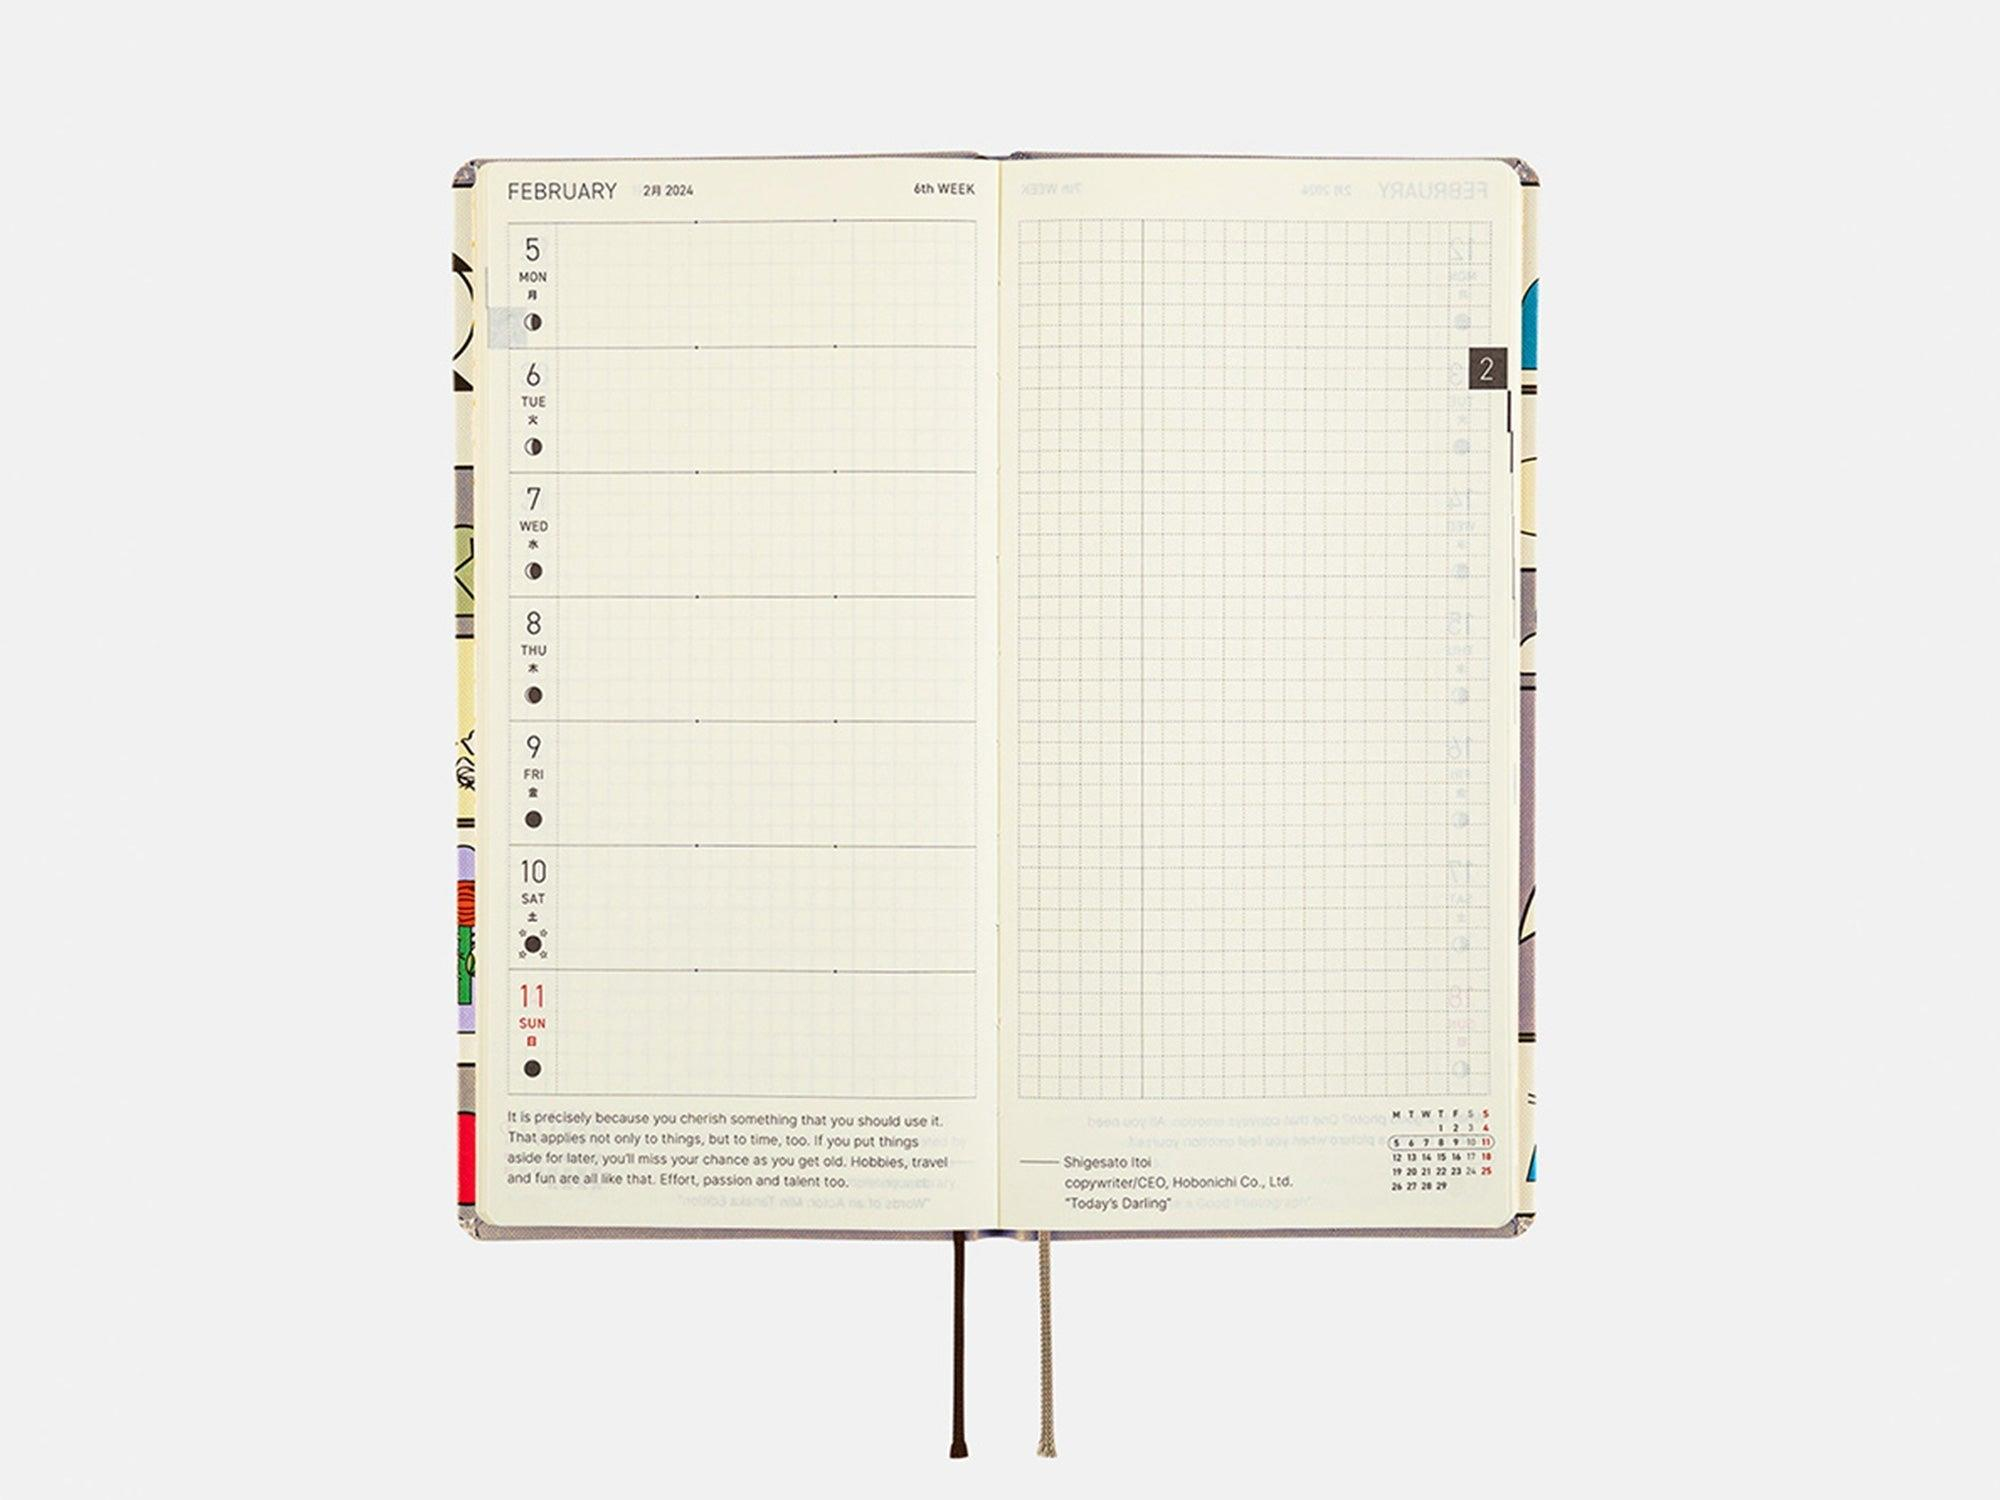 FEBRUARY 2月 2024 6th WEEK
5
MON
月
6
TUE
火
7
WED
水
8
THU
木
9
FRI
金
10
SAT
土
11
SUN
日
It is precisely because you cherish something that you should use it.
That applies not only to things, but to time, too. If you put things
aside for later, you'll miss your chance as you get old. Hobbies, travel
and fun are all like that. Effort, passion and talent too.
2
Shigesato Itoi
copywriter/CEO, Hobonichi Co., Ltd.
"Today's Darling"
M T W T F S S
1 2 3 4
5 6 7 8 9 10 11
12 13 14 15 16 17 18
19 20 21 22 23 24 25
26 27 28 29